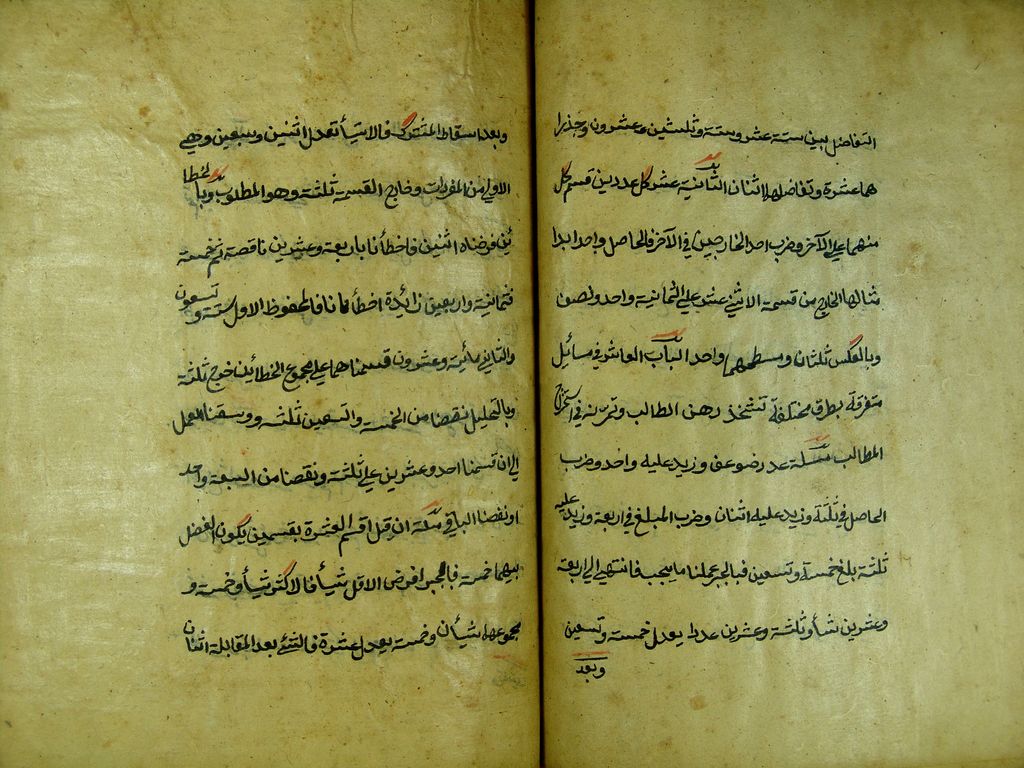 التفاضل بين ستة عشر وستة وثلثين عشرون وجذرا
هما عشرة وتفاضلهما اثنان الثانية عشر كل عددين قسم كل
منهما على الآخر وضرب احد الخارجين في الآخر فالحاصل واحد ابدا
مثالها الخارج من قسمة الاثنى عشر على الثمانية واحد ونصف
وبالعكس ثلثان ومسطحهما واحد الباب العاشر في مسائل
متفرقة بطرق مختلفة تشحذ ذهن الطالب وتمرنه في استخراج
المطالب مسئلة عدد ضوعف وزيد عليه واحد وضرب
الحاصل في ثلثة وزيد عليه اثنان وضرب المبلغ في اربعة وزيد عليه
ثلثة بلغ خمسة وتسعين فبالجبر عملنا ما يجب فانتهى الى اربعة
وعشرين شأ وثلثة وعشرين عددا يعدل خمسة وتسعين
وبعد
وبعد اسقاط المشترك فالاشيأ تعدل اثنين وسبعين وهي
الاولى من المفردات وخارج القسمة ثلثة وهو المطلوب وبالخطا
ئين فرضناه اثنين فاخطأنا باربعة وعشرين ناقصة ثم خمسة
فثمانية واربعين زائدة اخطأنا فالمحفوظ الاول ستة وتسعون
والثاني مائة وعشرون قسمناهما على مجموع الخطائين خرج ثلثة
وبالتحليل نقصنا من الخمسة والتسعين ثلثه ووسقنا العمل
الى ان قسمنا احد وعشرين على ثلثة ونقصنا من السبعة واحد
او نصفنا الباقي مسئلة ان قيل اقسم العشرة بقسمين يكون الفضل
بينهما خمسة فبالجبر افرض الاقل شيأ فالاكثر شيأ وخمسة و
مجموعهما شيأن وخمسة يعدل عشرة فالشئ بعد المقابلة اثنان